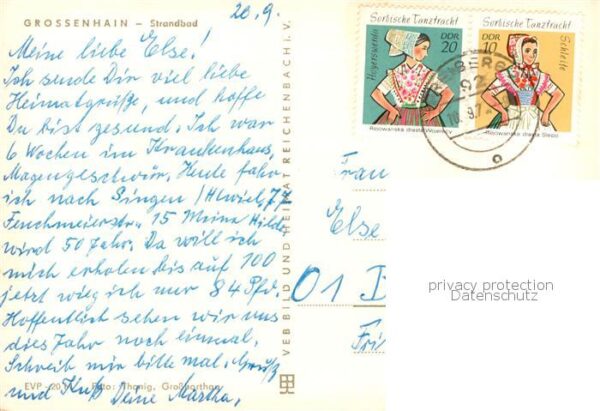 GROSSENHAIN — Strandbad
20.9.
Meine liebe Else!
Ich sende Dir viel liebe
Heimatgrüße, und hoffe
Du bist gesund. Ich war
6 Wochen im Krankenhaus,
Magengeschwür. Heute fahr
ich nach Singen (Htwiel, 77
15 Meine Hilde
wird 50 Jahr. Da will ich
mich erholen bis auf 100
jetzt wieg ich nur 84 Pfd.
Hoffentlich sehen wir uns
dies Jahr noch einmal.
Schreib mir bitte mal. Gruß
und Kuß Deine Martha.
EVP -,20 Foto: Thonig, Großharthau
VEB BILD UND HEIMAT REICHENBACH i. V.
Sorbische Tanztracht
Hoyerswerda
DDR
20
Rejowanska drasta Wojerecy
Sorbische Tanztracht
Schleife
DDR
10
Rejowanska drasta Slepo
92
Frau
Else
01
privacy protection
Datenschutz